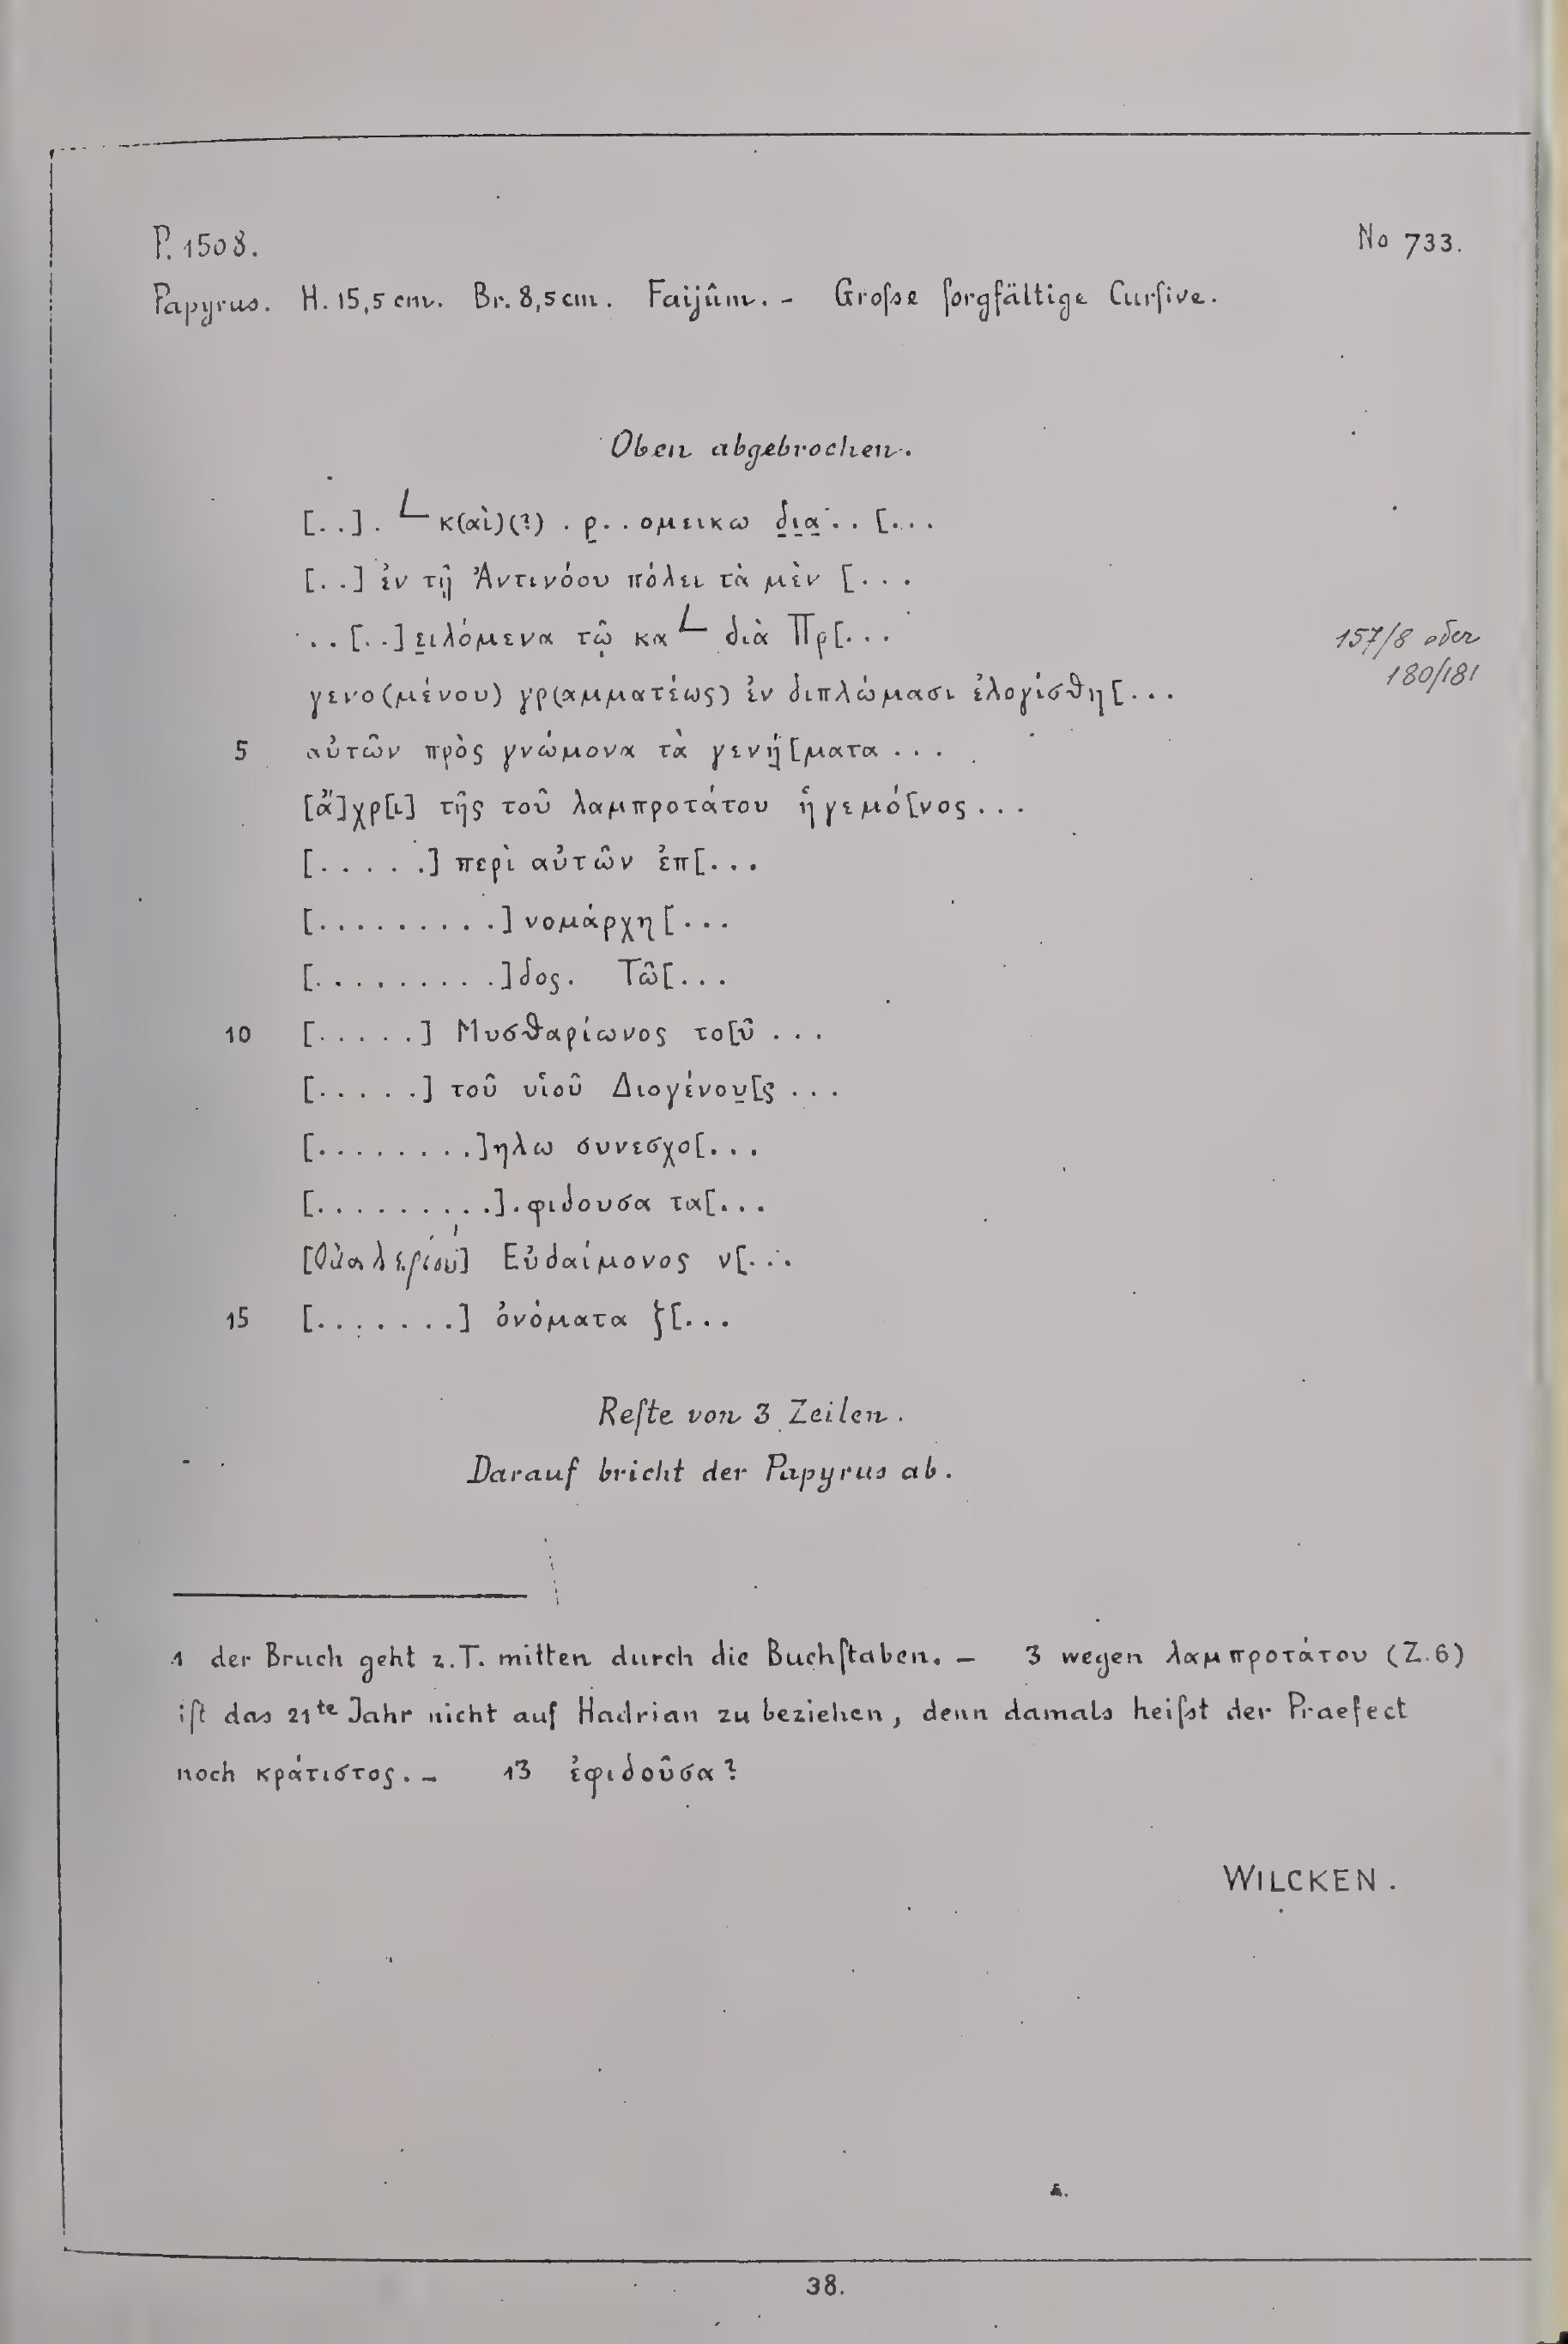 P. 1508. No 733.
Papyrus. H. 15,5 cm. Br. 8,5 cm. Faijûm. – Groſse ſorgfältige Curſive.
Oben abgebrochen.
[. .] . 𐅹 κ(αὶ)(?) . ρ̣ . . ομεικω δ̣ι̣α̣ . . [. . .
[. .] ἐν τῇ Ἀντινόου πόλει τὰ μὲν [. . .
. . [. .] ε̣ιλόμενα τῷ κα 𐅹 διὰ Πρ[. . .
157/8 oder
180/181
γενο(μένου) γρ(αμματέως) ἐν διπλώμασι ἐλογίσθη[. . .
5 αὐτῶν πρὸς γνώμονα τὰ γενή̣[ματα . . .
[ἄ]χρ[ι] τῆς τοῦ λαμπροτάτου ἡγεμό[νος . . .
[. . . . .] περὶ αὐτῶν ἐπ[. . .
[. . . . . . . . .] νομάρχη[. . .
[. . . . . . . . .]δος. Τῶ[. . .
10 [. . . . .] Μυσθαρίωνος το[ῦ . . .
[. . . . .] τοῦ υἱοῦ Διογένου̣[ς . . .
[. . . . . . . .]ηλω συνεσχο[. . .
[. . . . . . . . .] . φιδουσα τα[. . .
[Οὐαλερίου] Εὐδαίμονος ν[. . .
15 [. . . . . . .] ὀνόματα ξ[. . .
Reſte von 3 Zeilen.
Darauf bricht der Papyrus ab.
1 der Bruch geht z. T. mitten durch die Buchſtaben. – 3 wegen λαμπροτάτου (Z. 6)
iſt das 21te Jahr nicht auf Hadrian zu beziehen, denn damals heiſst der Praefect
noch κράτιστος. – 13 ἐφιδοῦσα?
WILCKEN.
38.